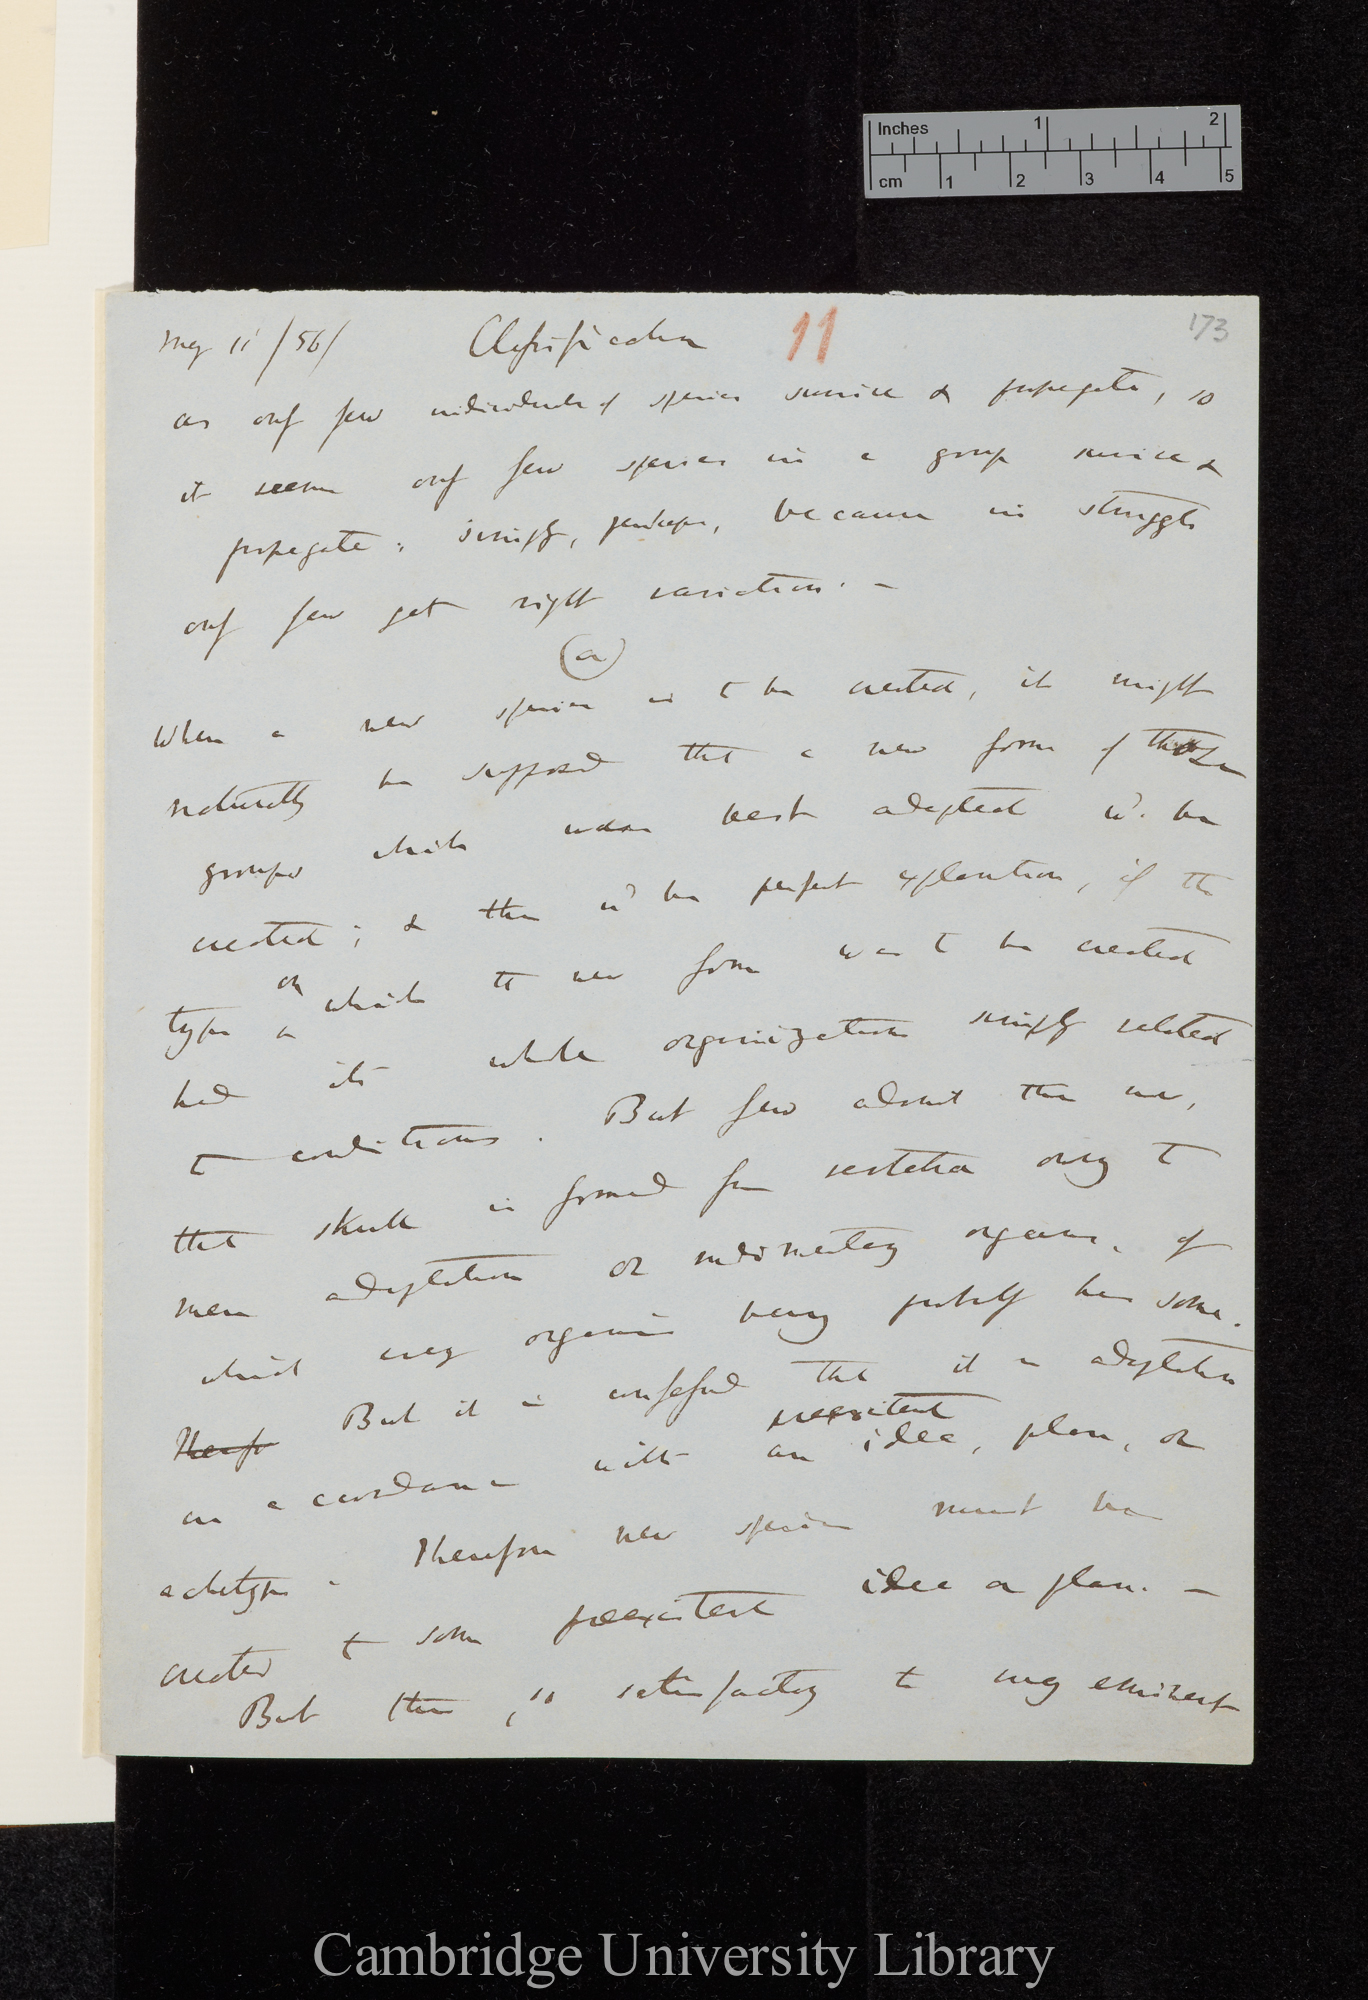 Inches 1 2
cm 1 2 3 4 5
May 11 /56/ Classification 11 173
as only few individuals of species survive & propagate, so
it seems only few species in a group survive &
propagate; simply, perhaps, because in struggle
only few get right variation. —
(a)
When a new species is to be created, it might
naturally be supposed that a new form of those
groups which was best adapted wd. be
created; & this wd be perfect explanation, if the
on
type in which the new form was to be created
had its whole organization simply related
to conditions. But few admit this now,
that skull is formed from vertebra owing to
mere adaptation or rudimentary organs, of
which every organic being probably has some.
Therefore But it is confessed that it is adaptation
preexistent
in accordance with an idea, plan, or
archetype. Therefore new species must be
created to some preexistent idea or plan. —
But this, so satisfactory to many eminent
Cambridge University Library